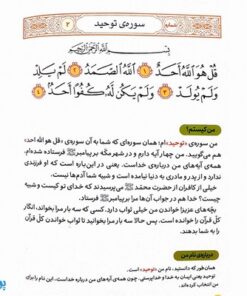 سوره‌ی توحید
۲
بِسْمِ اللَّهِ الرَّحْمَٰنِ الرَّحِيمِ
قُلْ هُوَ اللَّهُ أَحَدٌ ۝١ اللَّهُ الصَّمَدُ ۝٢ لَمْ يَلِدْ
وَلَمْ يُولَدْ ۝٣ وَلَمْ يَكُنْ لَهُ كُفُوًا أَحَدٌ ۝٤
من کیستم؟
من سوره‌ی «توحید»ام؛ همان سوره‌ای که شما به آن سوره‌ی «قل هو الله احد»
هم می‌گویید. من چهار آیه دارم و در شهر مکّه بر پیامبر ﷺ فرستاده شده‌ام.
همه‌ی آیه‌های من درباره‌ی خداست. یعنی در این‌باره است که او فرزندی
ندارد و از پدر و مادری به دنیا نیامده است و هیچ شبیه و همانندی ندارد.
خیلی از کافران از حضرت محمّد ﷺ می‌پرسیدند که خدای تو کیست و شبیه
چیست؟ خدا هم در جواب آن‌ها مرا بر پیامبر ﷺ فرستاد.
بچّه‌های عزیز! خواندن من خیلی ثواب دارد. کسی که سه بار مرا بخواند، انگار
کلّ قرآن را خوانده است. حالا سه بار مرا بخوانید تا ثواب خواندن کلّ قرآن
را به شما بدهند.
درباره‌ی نام من
همان‌طور که دانستید، نام من «توحید» است.
توحید یعنی ایمان به خدا و خداپرستی. چون همه‌ی آیه‌های من درباره خداست، این نام را برای
من انتخاب کرده‌اند.